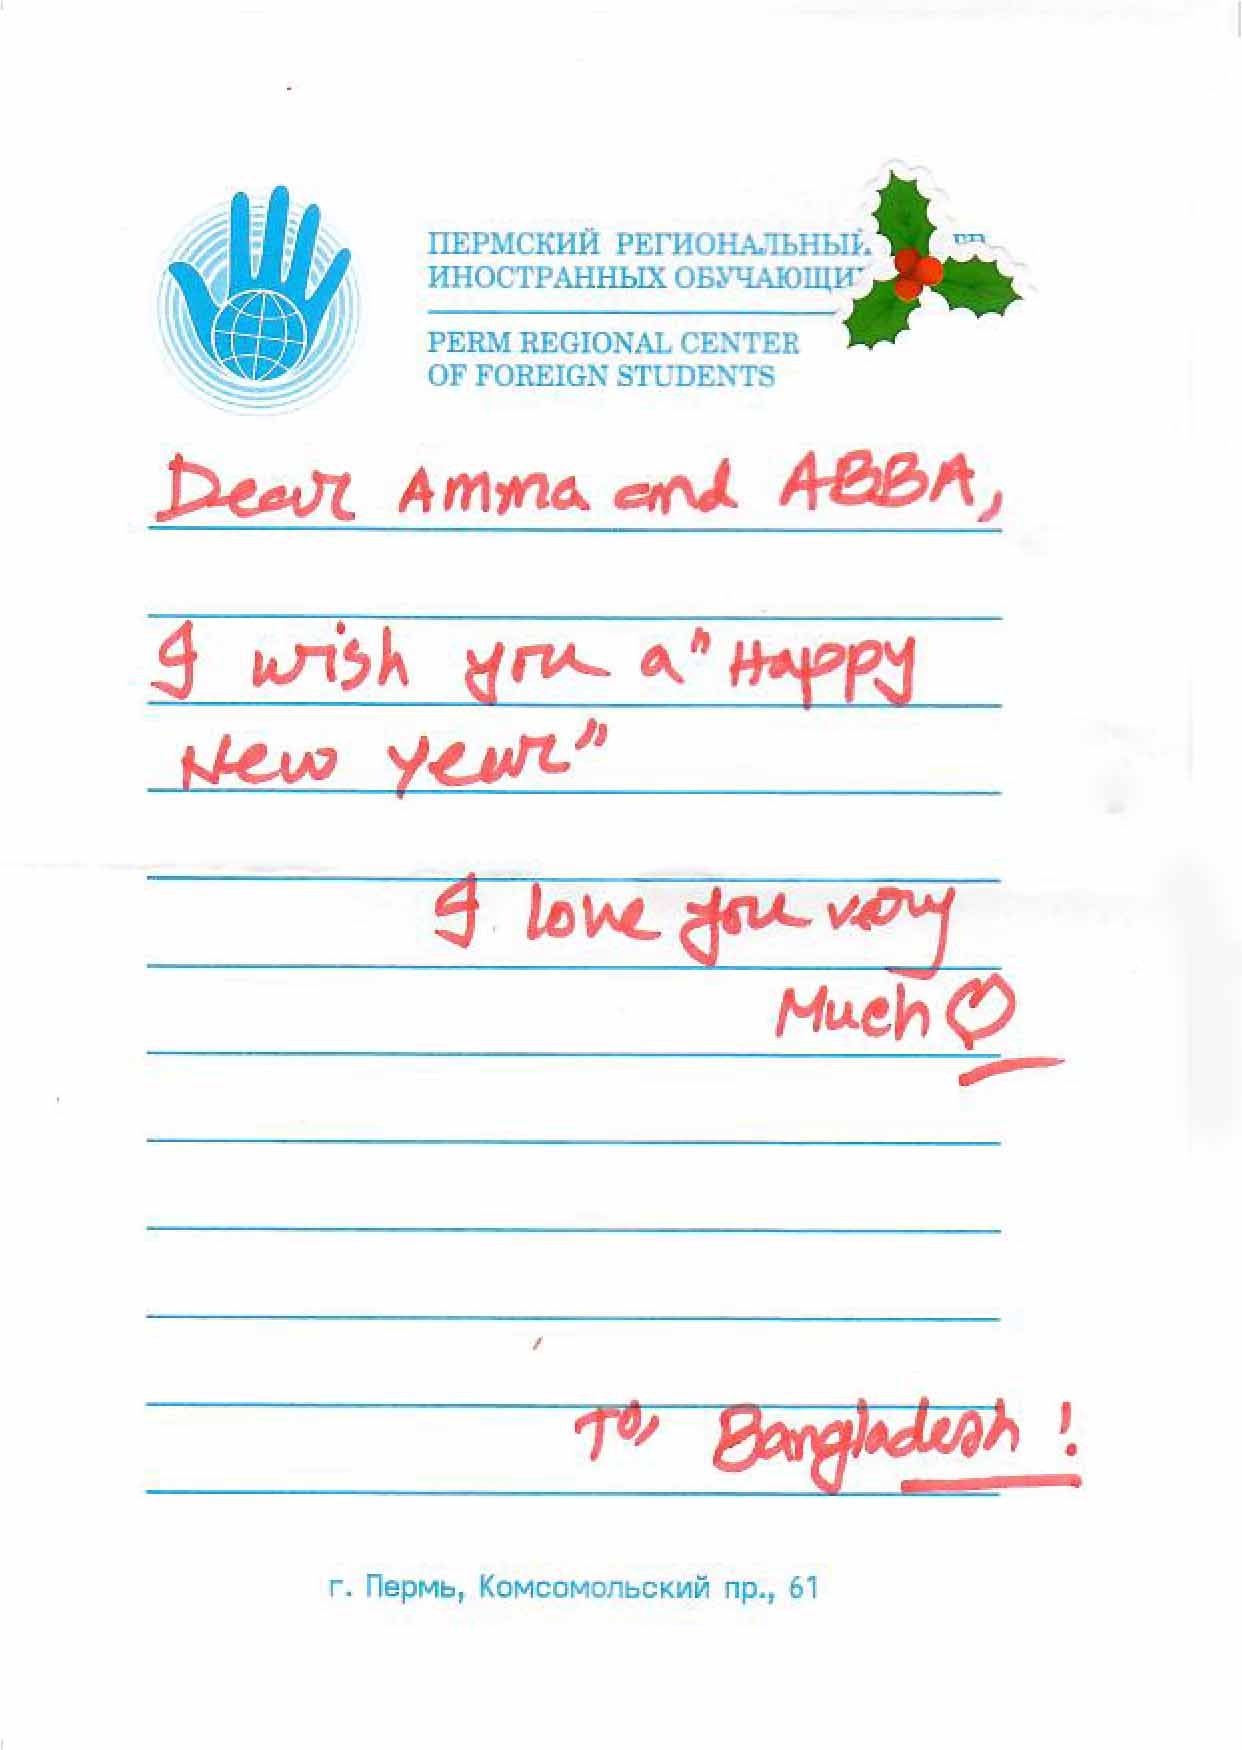 ПЕРМСКИЙ РЕГИОНАЛЬНЫЙ
ИНОСТРАННЫХ
PERM REGIONAL CENTER
OF FOREIGN STUDENTS
Dear Amma and ABBA,
I wish you a "Happy
New Year"
I love you very
Much
To, Bangladesh !
г. Пермь, Комсомольский пр., 61